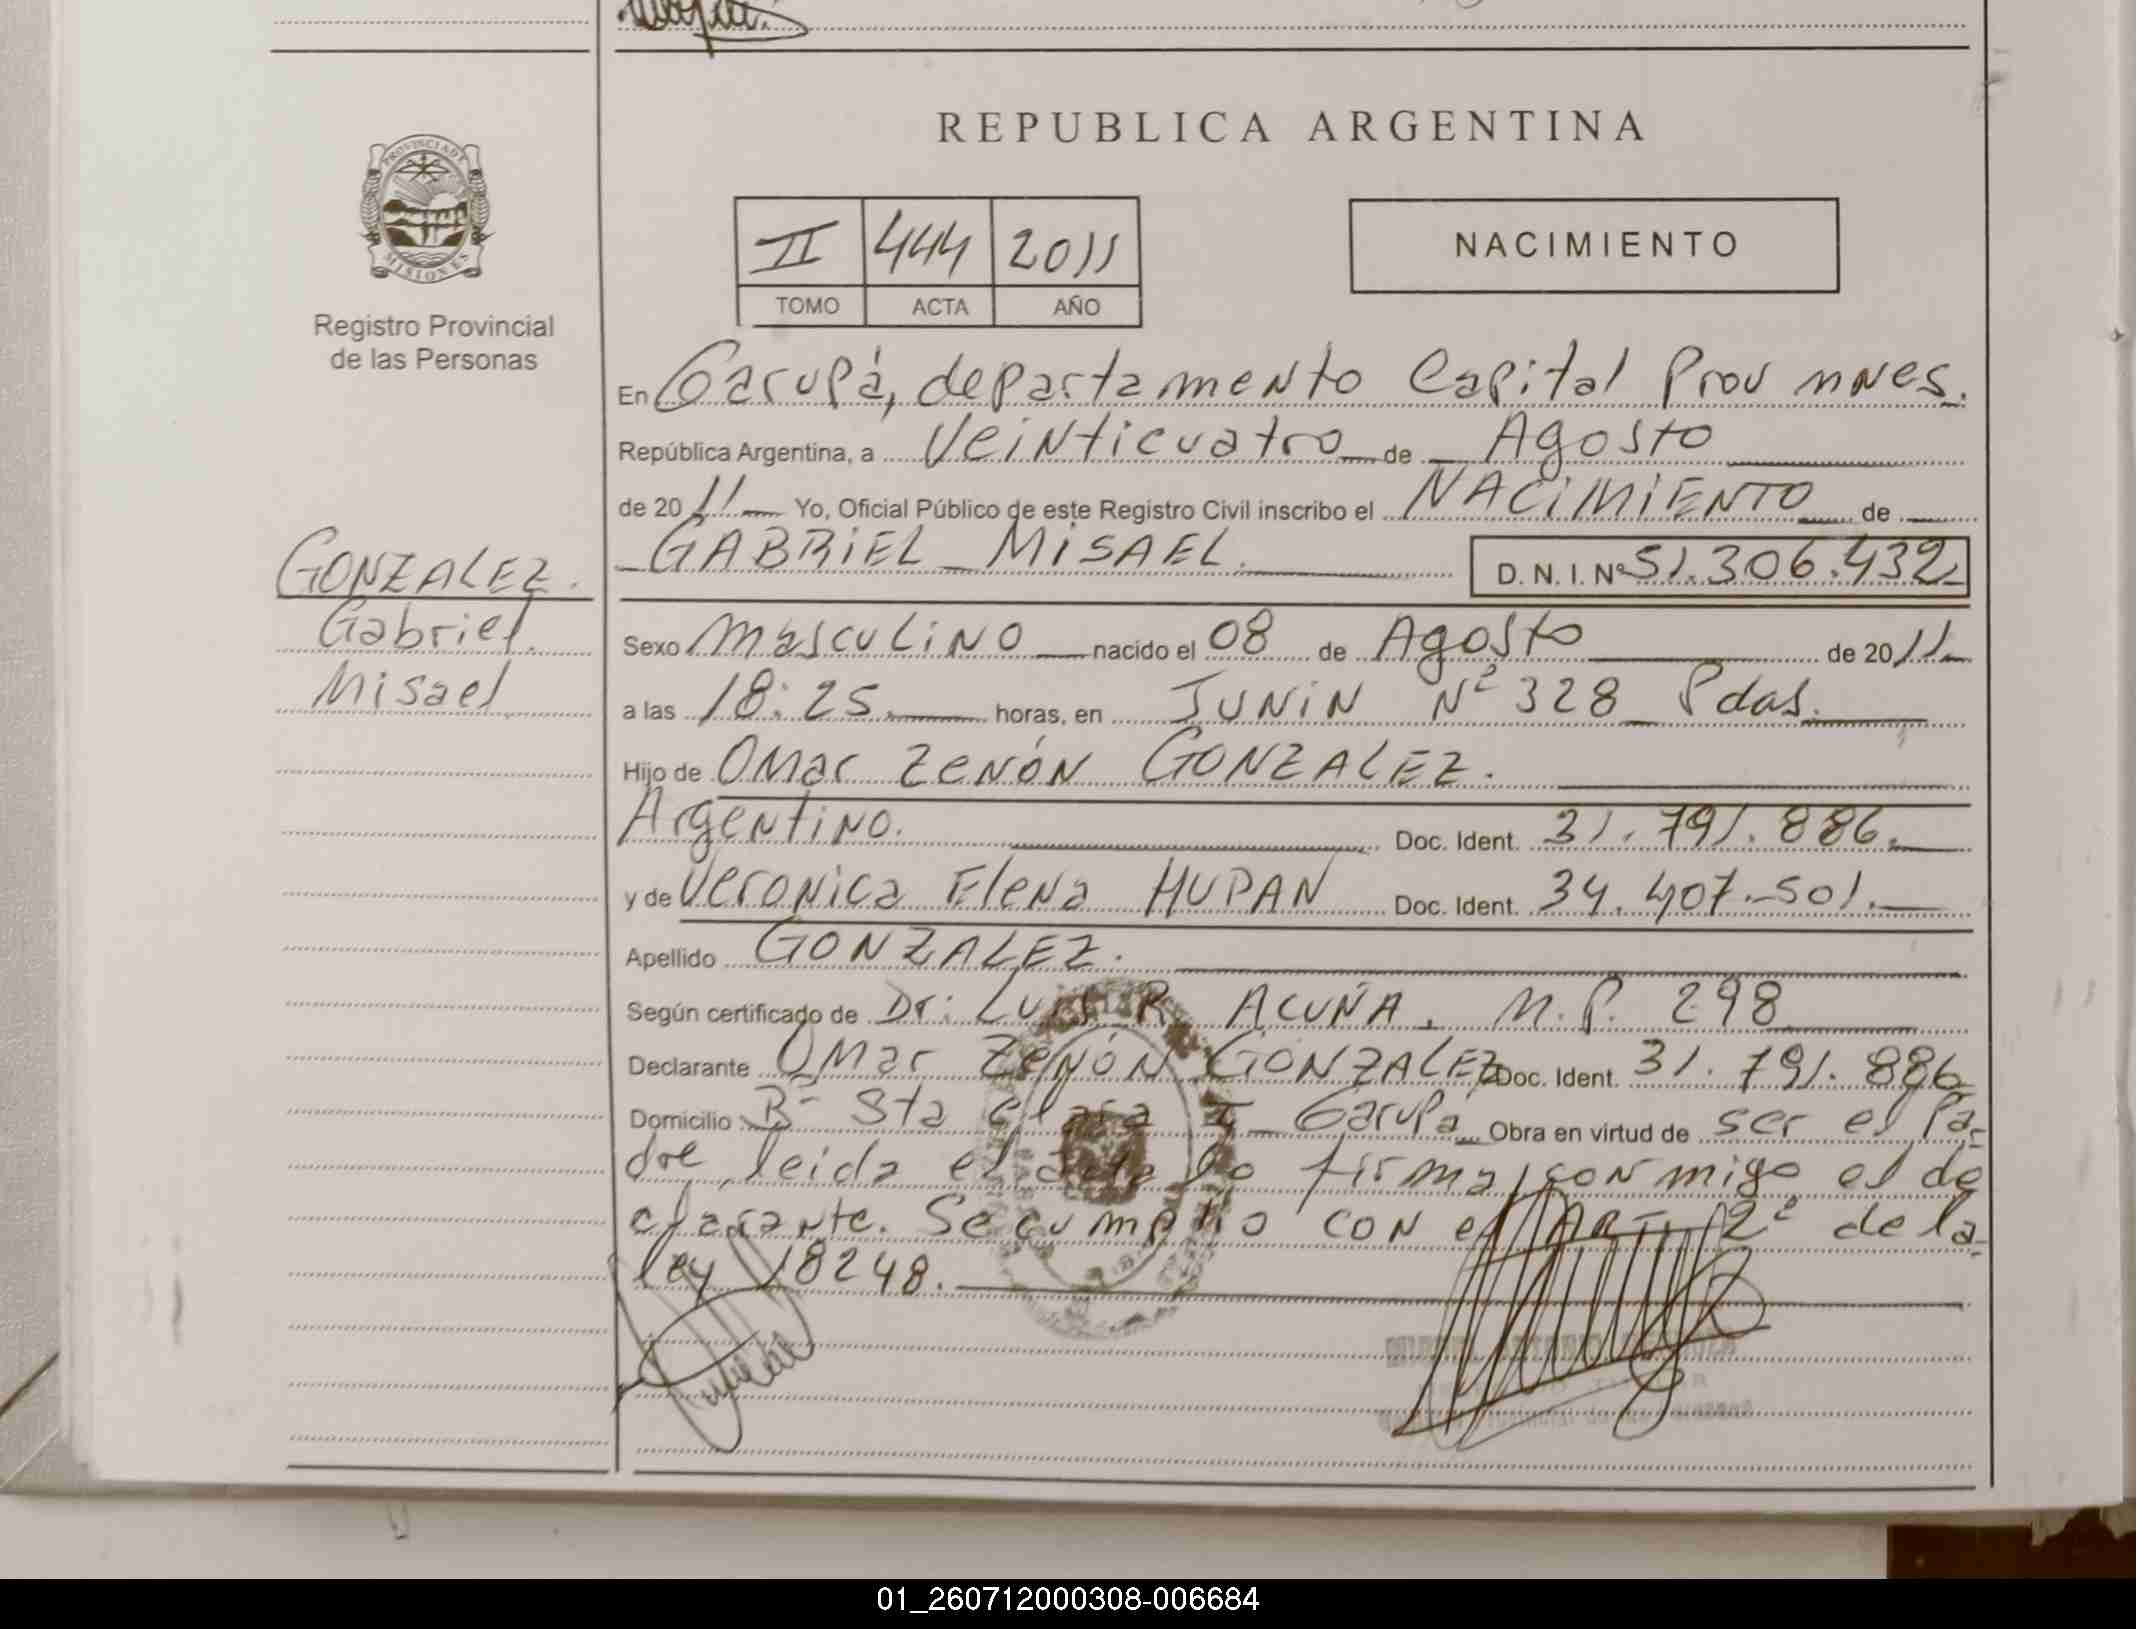 REPUBLICA ARGENTINA
PROVINCIA DE
MISIONES
Registro Provincial
de las Personas
II 444 2011
TOMO ACTA AÑO
NACIMIENTO
En Garupá, departamento Capital Prov mnes.
República Argentina, a Veinticuatro de Agosto
de 2011 Yo, Oficial Público de este Registro Civil inscribo el NACIMIENTO de
GABRIEL MISAEL. D. N. I. Nº 51.306.432
GONZALEZ.
Gabriel
Misael
Sexo Masculino nacido el 08 de Agosto de 2011
a las 18:25 horas, en JUNIN Nº 328 Pdas.
Hijo de Omar Zenón GONZALEZ.
Argentino. Doc. Ident. 31.791.886.
y de Veronica Elena HUPAN Doc. Ident. 34.407.501.
Apellido GONZALEZ.
Según certificado de Dr: Luis R. ACUÑA. M.P. 298
Declarante Omar Zenón GONZALEZ Doc. Ident. 31.791.886
Domicilio Bº Sta Clara I Garupá Obra en virtud de ser el Pa-
dre, leida el acta lo firma conmigo el de
clarante. Se cumplio con el ART. 2º de la
ley 18248.
01_260712000308-006684